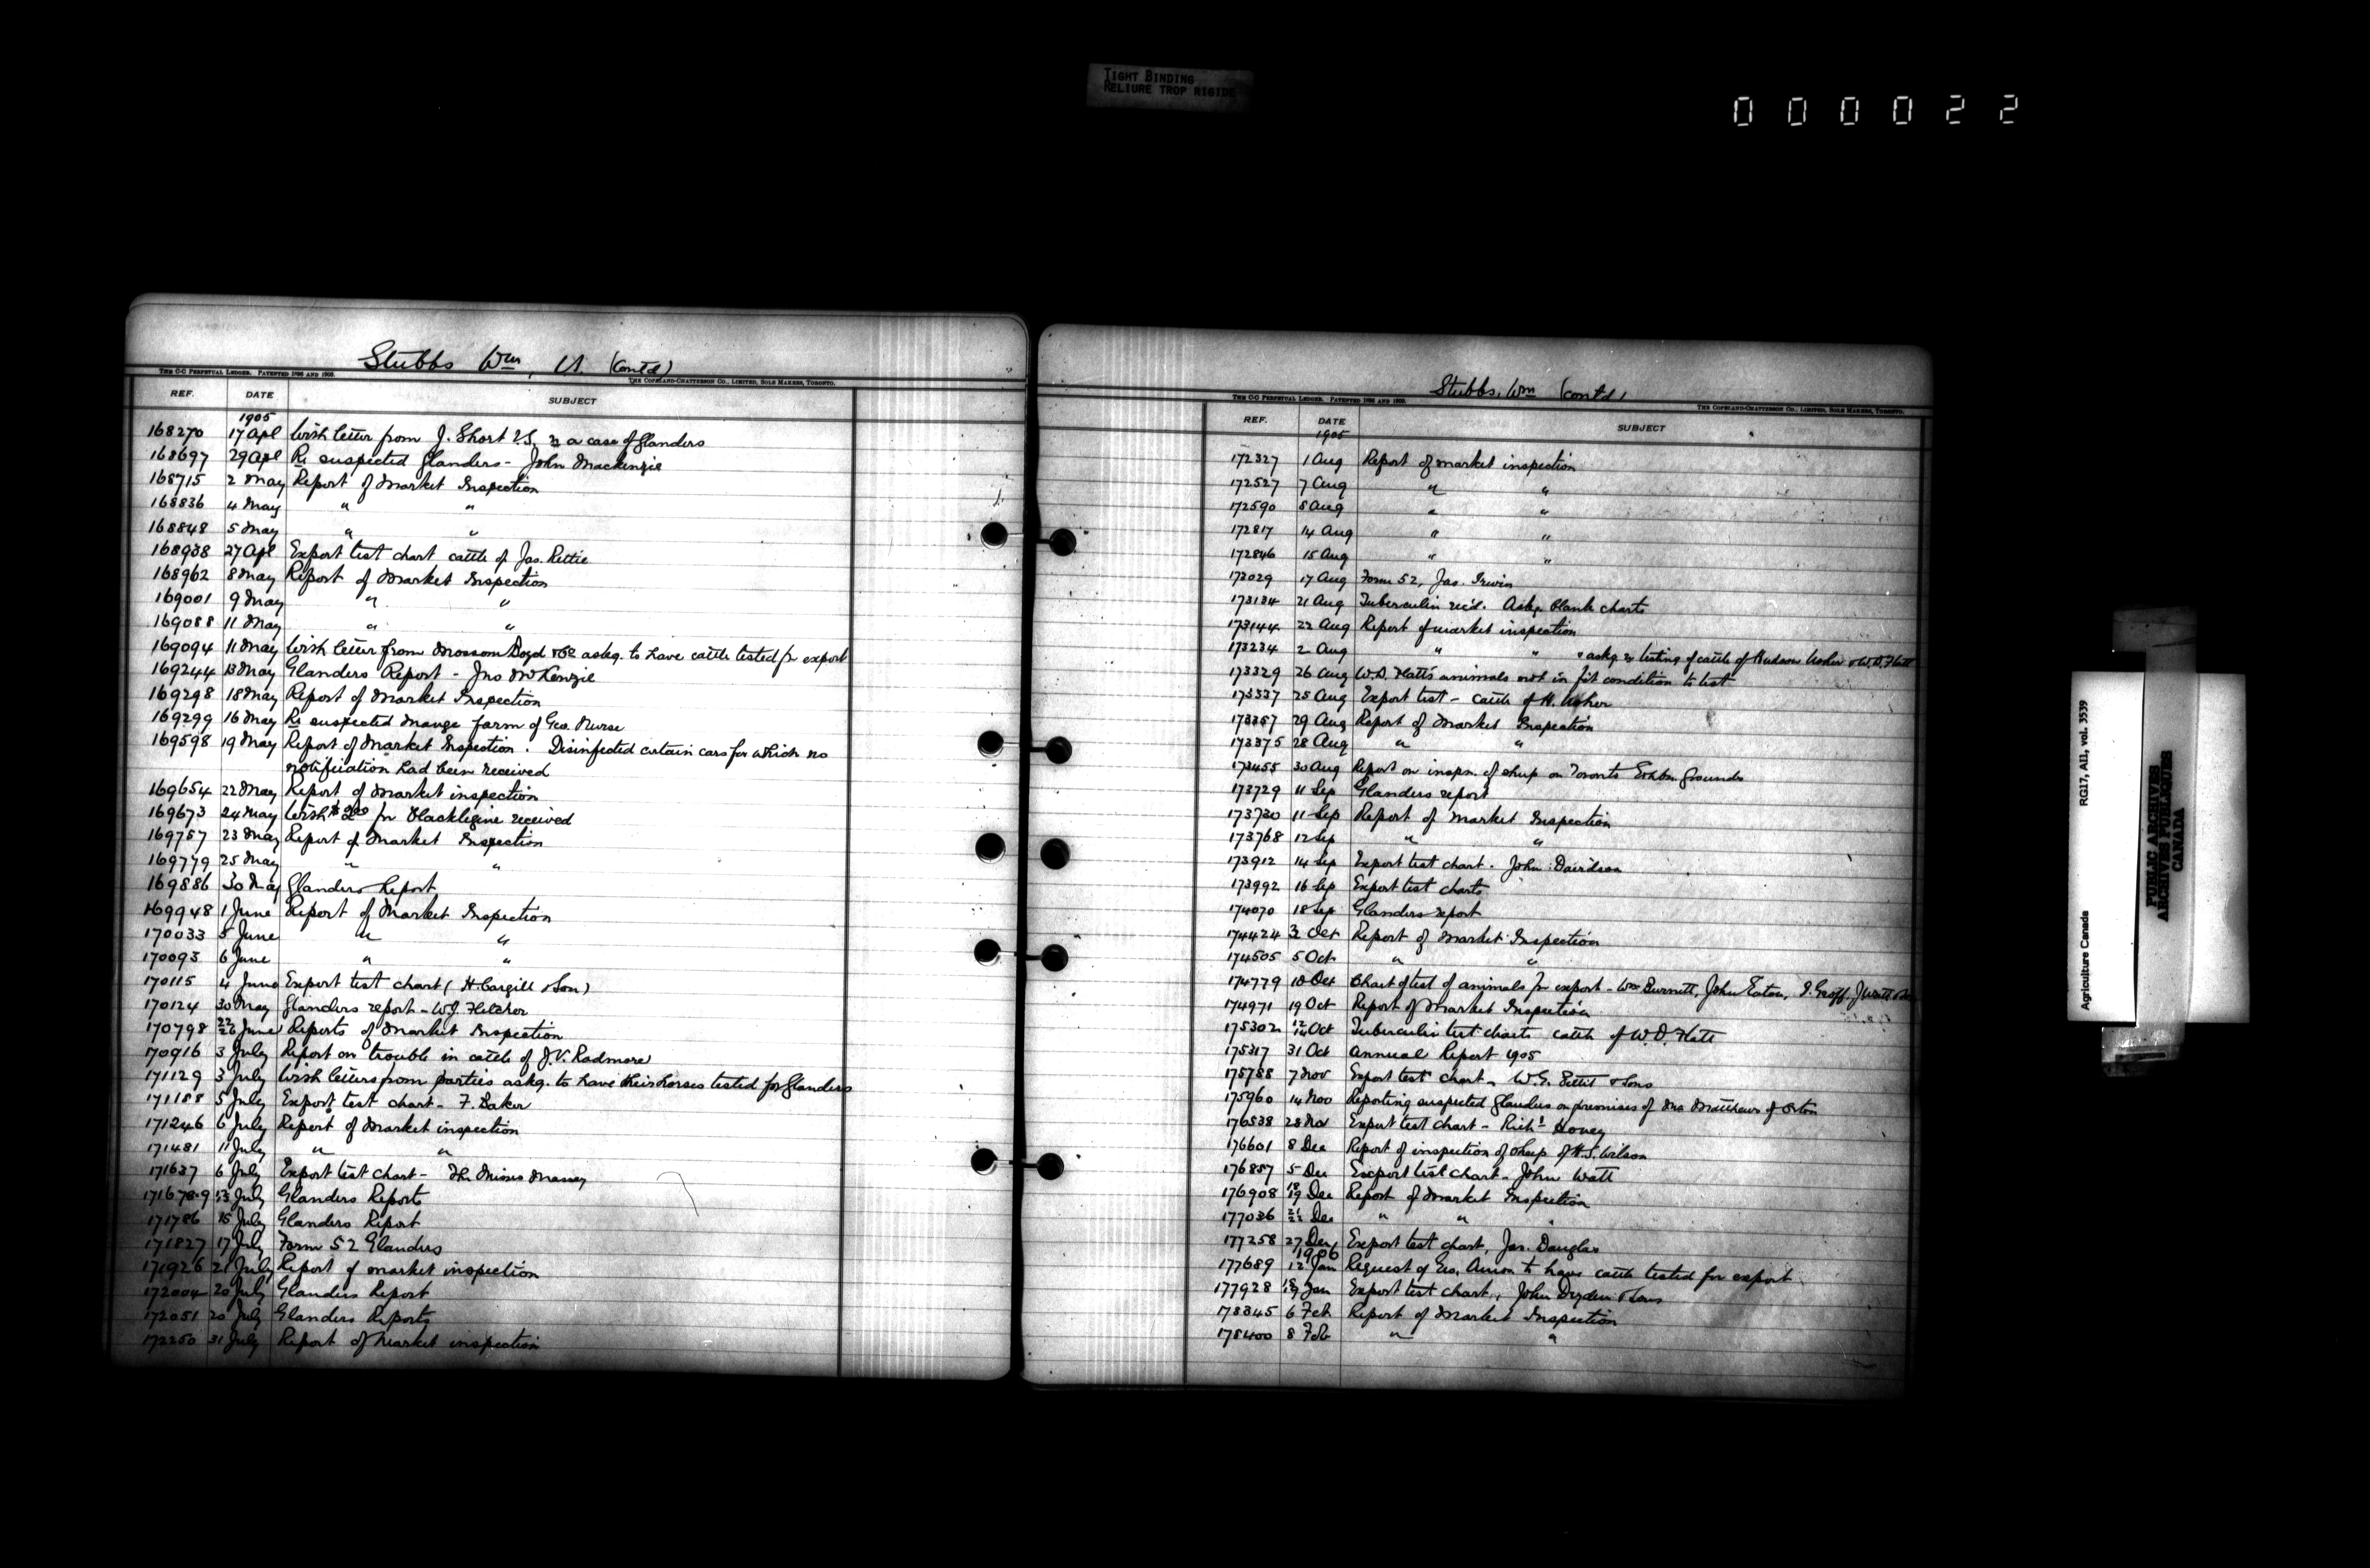 TIGHT BINDING
RELIURE TROP RIGIDE
000022
Stubbs Wm, (Contd)
THE C-C PERPETUAL LEDGER. PATENTED 1896 AND 1900.
THE COPELAND-CHATTERSON CO., LIMITED, SOLE MAKERS, TORONTO.
REF. DATE SUBJECT
1905
168270 17 Apl With letter from J. Short V.S. re a case of Glanders
168697 29 Apl Re suspected Glanders - John Mackenzie
168715 2 May Report of Market Inspection
168836 4 May " "
168848 5 May " "
168938 27 Apl Export test chart cattle of Jas. Rettie
168962 8 May Report of Market Inspection
169001 9 May " "
169088 11 May " "
169094 11 May With letter from Mossom Boyd &Co askg. to have cattle tested for export
169244 13 May Glanders Report - Jno McKenzie
169298 18 May Report of Market Inspection
169299 16 May Re suspected Mange farm of Geo. Nurse
169598 19 May Report of Market Inspection. Disinfected certain cars for which no
notification had been received
169654 22 May Report of Market inspection
169673 24 May With $2.00 for Blacklegine received
169757 23 May Report of Market Inspection
169779 25 May " "
169886 30 May Glanders Report
169948 1 June Report of Market Inspection
170033 5 June " "
170093 6 June " "
170115 4 June Export test chart (H. Cargill & Son)
170124 30 May Glanders report - W.J. Fletcher
170798 22/26 June Reports of Market Inspection
170916 3 July Report on trouble in cattle of J.V. Radmore
171129 3 July With letters from parties askg. to have their horses tested for Glanders
171188 5 July Export test chart - F. Baker
171246 6 July Report of Market inspection
171481 11 July " "
171637 6 July Export test chart - The Misses Massey
171678-9 13 July Glanders Reports
171786 15 July Glanders Report
171827 17 July Form 52 Glanders
171926 21 July Report of market inspection
172004 20 July Glanders Report
172051 20 July Glanders Reports
172250 31 July Report of Market inspection
Stubbs, Wm (contd)
THE C-C PERPETUAL LEDGER. PATENTED 1896 AND 1900.
THE COPELAND-CHATTERSON CO., LIMITED, SOLE MAKERS, TORONTO.
REF. DATE SUBJECT
1905
172327 1 Aug Report of market inspection
172527 7 Aug " "
172590 8 Aug " "
172817 14 Aug " "
172846 15 Aug " "
173029 17 Aug Form 52, Jas. Irwin
173134 21 Aug Tuberculin rec'd. Askg. blank charts
173144 22 Aug Report of market inspection
173234 2 Aug " " & askg re testing of cattle of Hudson Usher & W.D. Flatt
173329 26 Aug W.D. Flatt's animals not in fit condition to test
173337 25 Aug Export test - cattle of H. Usher
173357 29 Aug Report of Market Inspection
173375 28 Aug " "
173455 30 Aug Report on inspn. of sheep on Toronto Exhbn. Grounds
173729 11 Sep Glanders report
173730 11 Sep Report of Market Inspection
173768 12 Sep " "
173912 14 Sep Export test chart - John Davidson
173992 16 Sep Export test charts
174070 18 Sep Glanders report
174424 3 Oct Report of Market Inspection
174505 5 Oct " "
174779 10 Oct Chart of test of animals for export - Wm Burnett, John Eaton, J. Watt
174971 19 Oct Report of Market Inspection
175302 12/14 Oct Tuberculin test charts cattle of W.D. Flatt
175317 31 Oct Annual Report 1905
175788 7 Nov Export test chart - W.G. Pettit & Sons
175960 14 Nov Reporting suspected Glanders on premises of Matthews of Orton
176538 28 Nov Export test chart - Richd Hovey
176601 8 Dec Report of inspection of sheep of H.S. Wilson
176857 5 Dec Export test chart - John Watt
176908 18/19 Dec Report of Market Inspection
177036 21/22 Dec " "
177258 27 Dec Export test chart, Jas. Douglas
1906
177689 12 Jan Request of Geo. Amos to have cattle tested for export
177928 Jan Export test chart, John Dryden & Sons
178345 6 Feb Report of Market Inspection
178400 8 Feb " "
Agriculture Canada RG17, AII, vol. 3539
PUBLIC ARCHIVES
ARCHIVES PUBLIQUES
CANADA